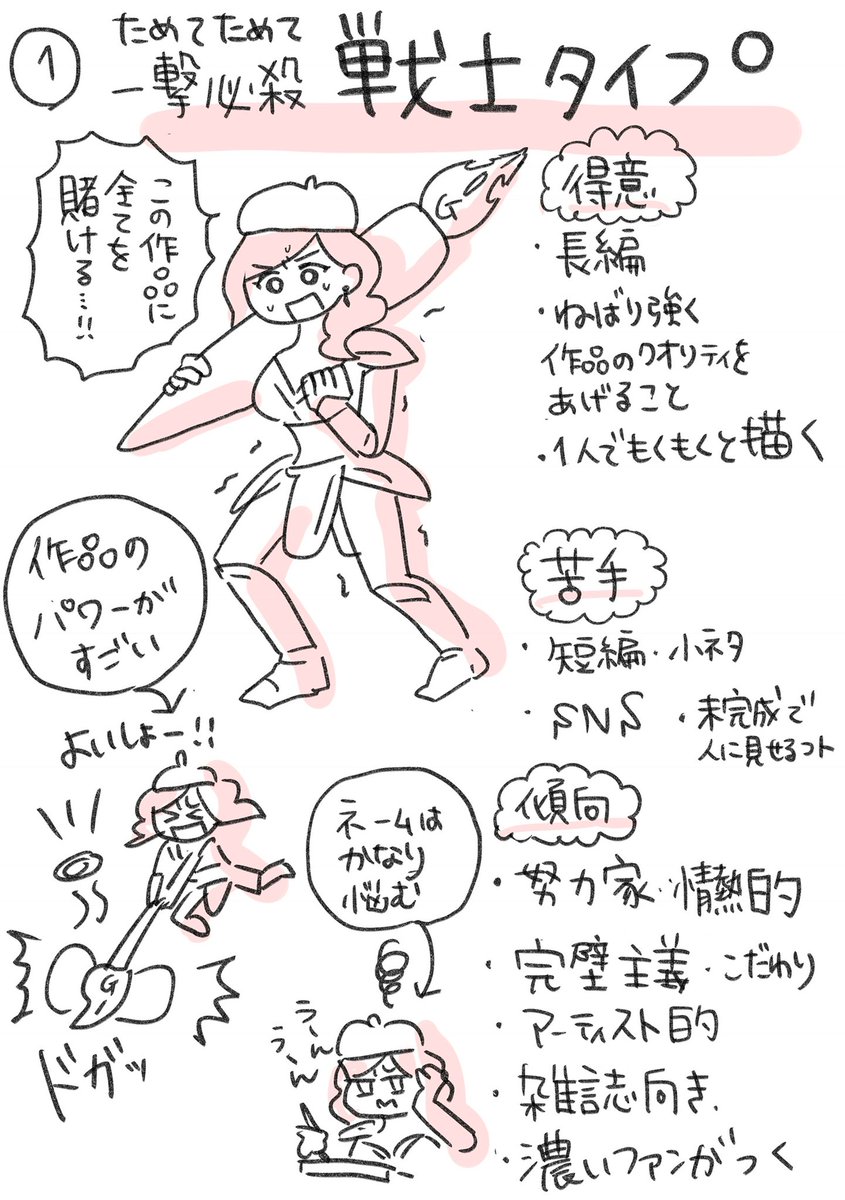 1
ためてためて
一撃必殺
戦士タイプ
この作品に
全てを
賭ける…!!
G
得意
・長編
・ねばり強く
作品のクオリティを
あげること
・1人でもくもくと描く
作品の
パワーが
すごい
苦手
・短編・小ネタ
・SNS・未完成で
人に見せるコト
よいしょー!!
G
ドガッ
ネームは
かなり
悩む
うーん
うーん
傾向
・努力家・情熱的
・完璧主義・こだわり
・アーティスト的
・雑誌向き
・濃いファンがつく